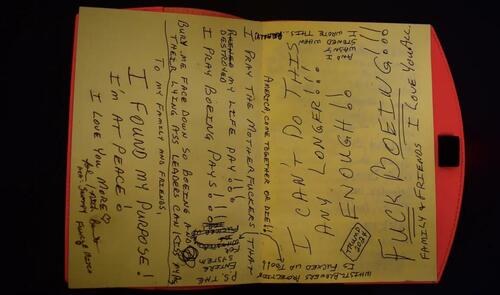 I CAN'T DO THIS
ANY LONGER!!!
ENOUGH!!
FUCK BOEING!!!
FAMILY & FRIENDS I LOVE YOU ALL
TRUMP
2024
AND I
WASN'T
STONED WHEN
I WROTE THIS..
AMERICA, COME TOGETHER OR DIE!!
I PRAY THE MOTHERFUCKERS THAT
DESTROYED MY LIFE PAY!!!
I PRAY BOEING PAYS!!!
BURY ME FACE DOWN SO BOEING AND
THEIR LYING ASS LEADERS CAN KISS MY
TO MY FAMILY AND FRIENDS,
I FOUND MY PURPOSE!
I'M AT PEACE!
I LOVE YOU MORE♡
P.S. THE
ENTIRE
SYSTEM
WHISTLEBLOWERS PROTECTION
IS FUCKED UP TOO!!